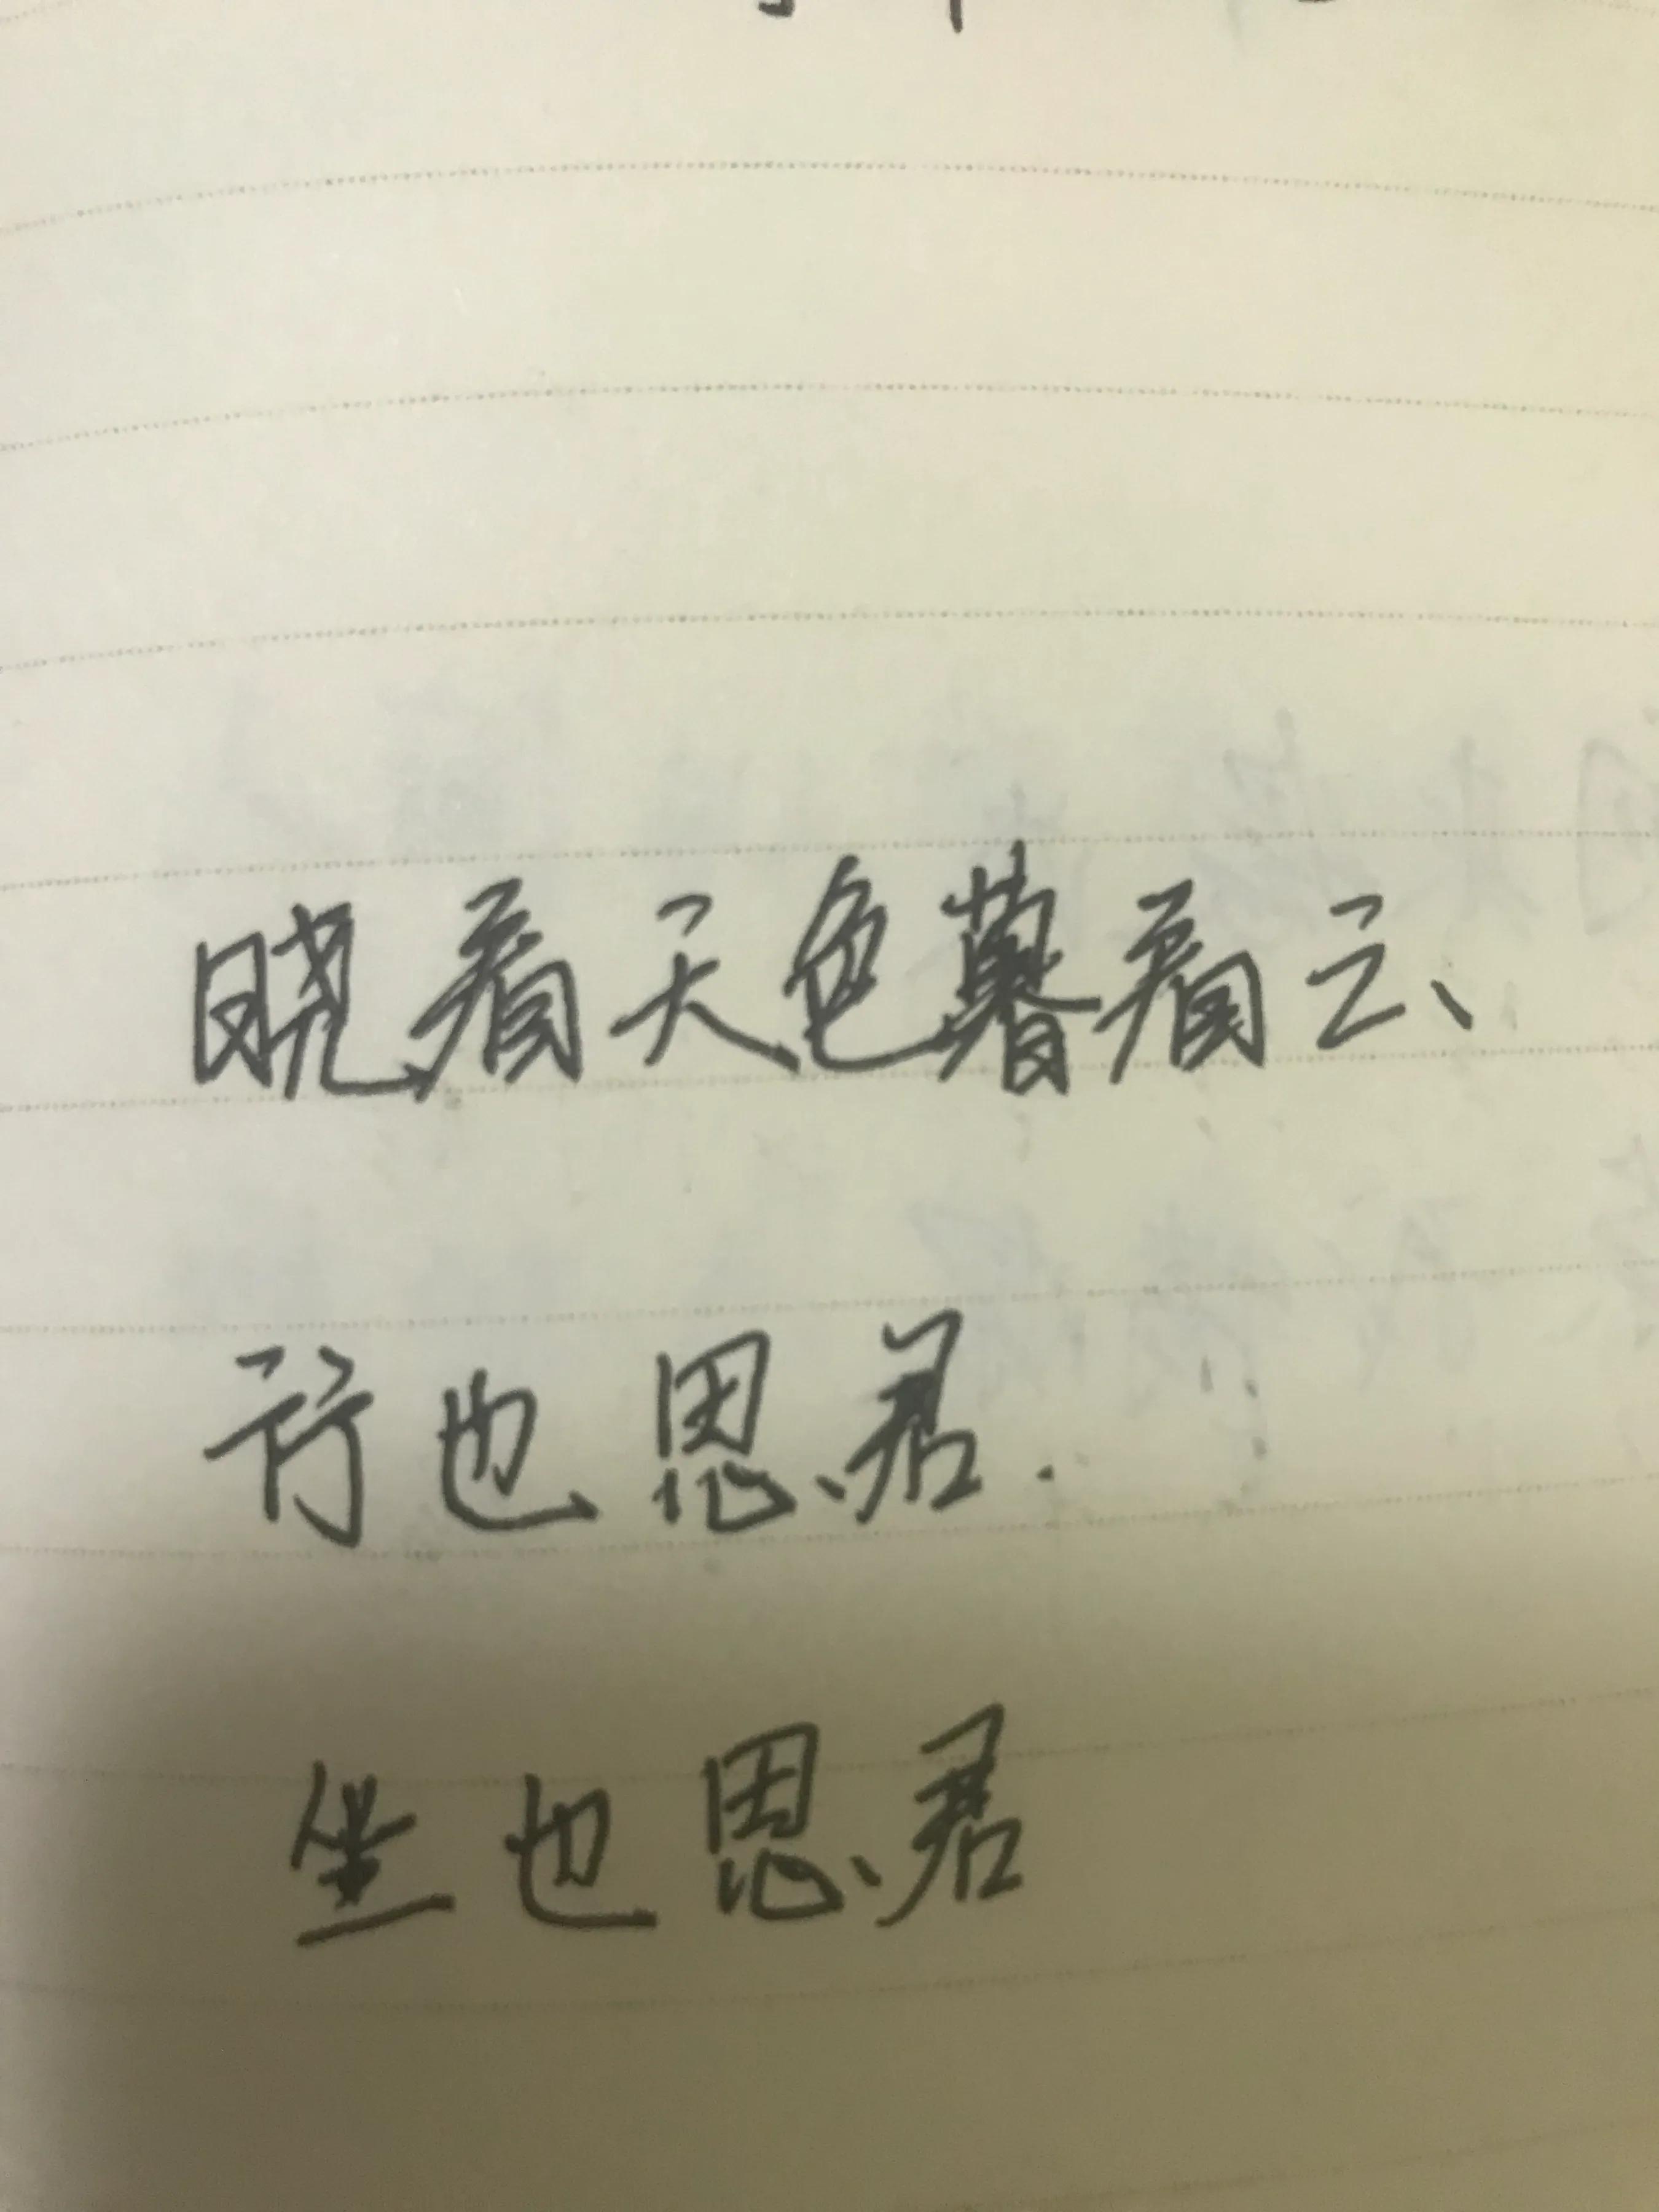 晓看天色暮看云、
行也思君.
坐也思君